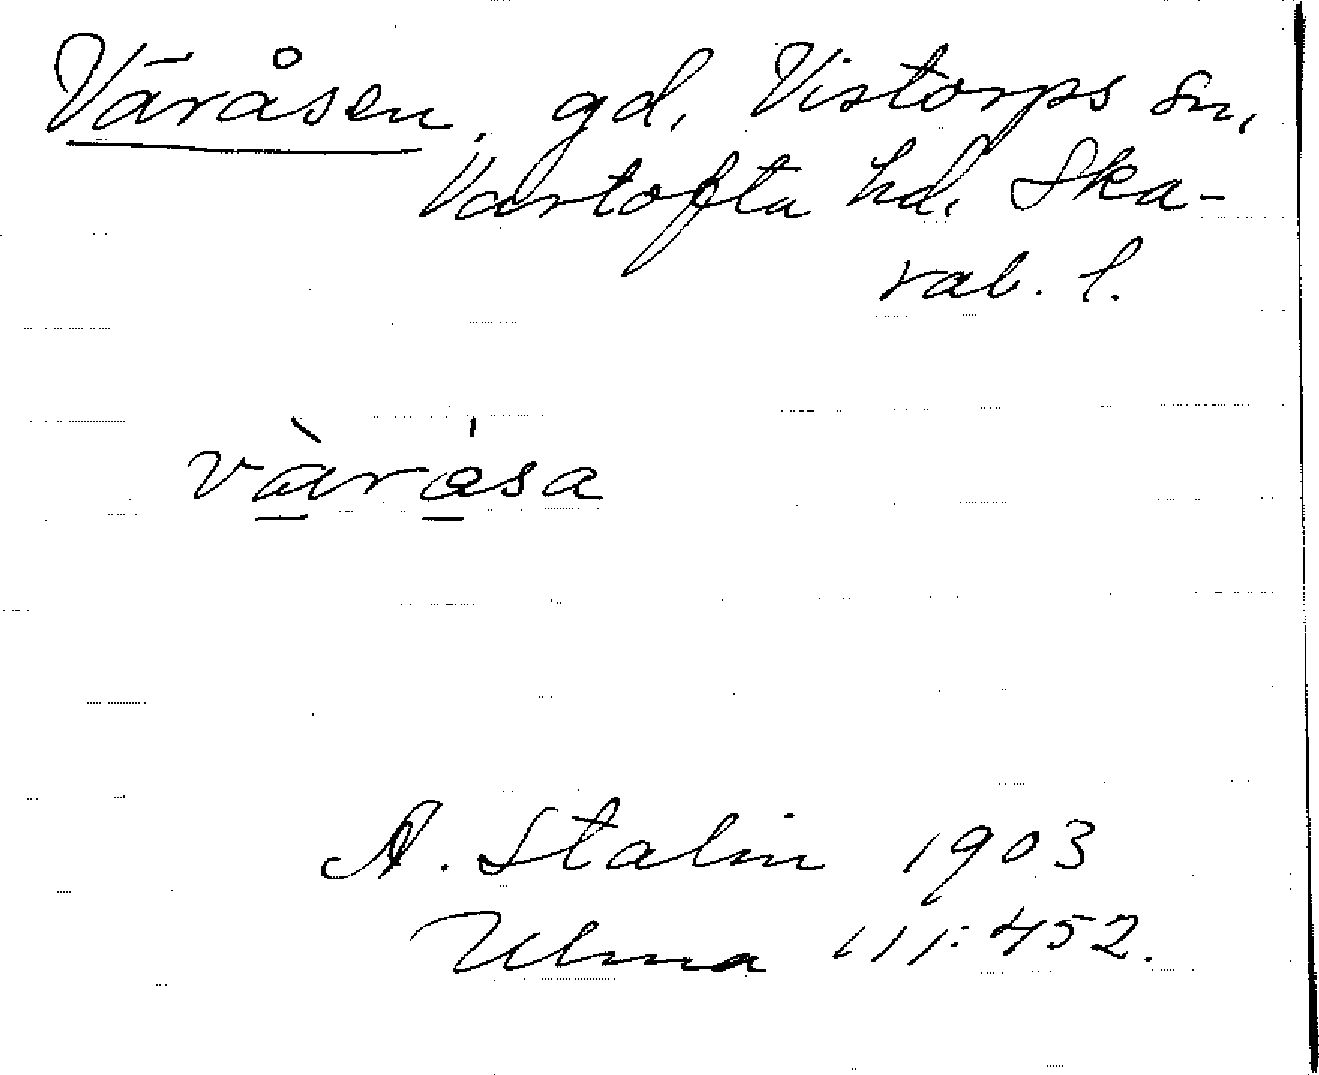 Våråsen, gd, Vistorps sn,
Vartofta hd, Ska-
rab. l.
vàråsa
A. Stalin 1903
Ulma 111:452.